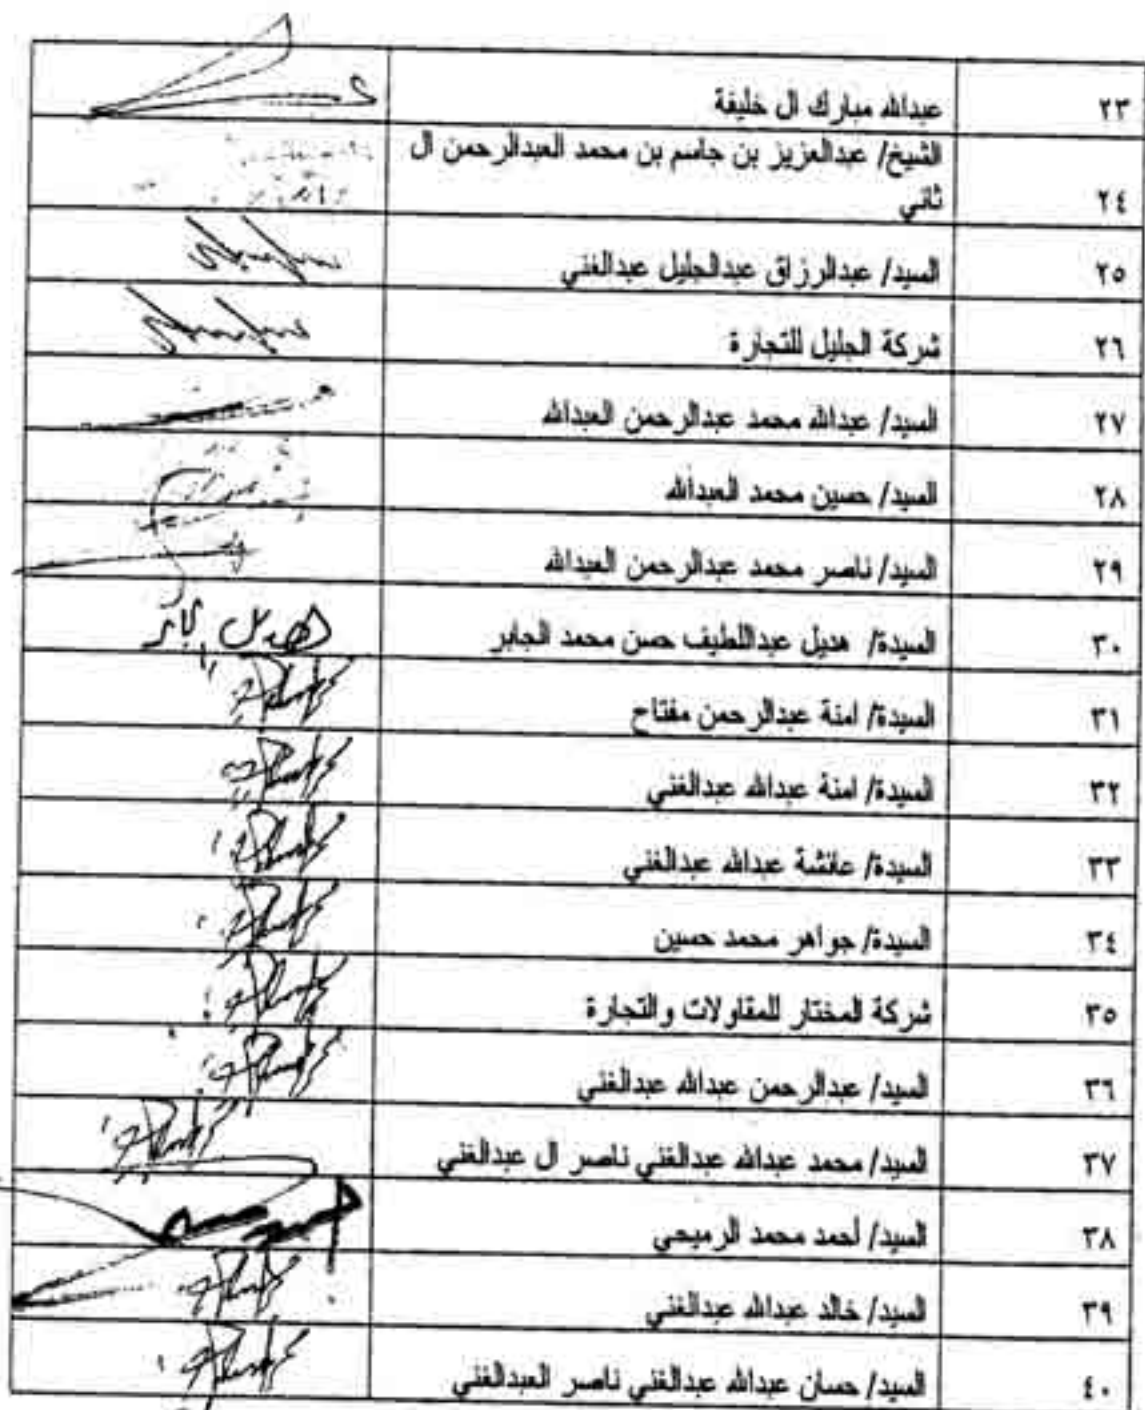 ٢٣ عبدالله مبارك ال خليفة
٢٤ الشيخ/ عبدالعزيز بن جاسم بن محمد العبدالرحمن ال
ثاني
٢٥ السيد/ عبدالرزاق عبدالجليل عبدالغني
٢٦ شركة الجليل للتجارة
٢٧ السيد/ عبدالله محمد عبدالرحمن العبدالله
٢٨ السيد/ حسين محمد العبدالله
٢٩ السيد/ ناصر محمد عبدالرحمن العبدالله
٣٠ السيدة/ هديل عبداللطيف حسن محمد الجابر
٣١ السيدة/ امنة عبدالرحمن مفتاح
٣٢ السيدة/ امنة عبدالله عبدالغني
٣٣ السيدة/ عائشة عبدالله عبدالغني
٣٤ السيدة/ جواهر محمد حسين
٣٥ شركة المختار للمقاولات والتجارة
٣٦ السيد/ عبدالرحمن عبدالله عبدالغني
٣٧ السيد/ محمد عبدالله عبدالغني ناصر ال عبدالغني
٣٨ السيد/ أحمد محمد الرميحي
٣٩ السيد/ خالد عبدالله عبدالغني
٤٠ السيد/ حسان عبدالله عبدالغني ناصر العبدالغني